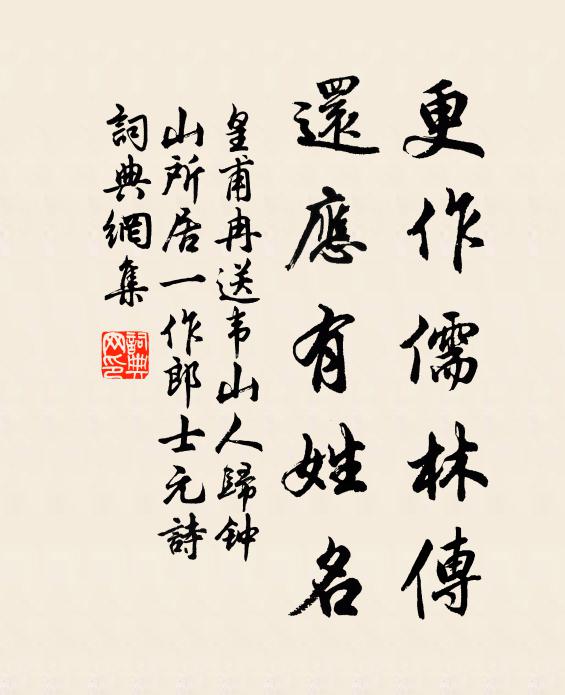 更作儒林傳
還應有姓名
皇甫冉送韦山人歸钟
山所居一作郎士元詩
詞典網集
詞典
网印